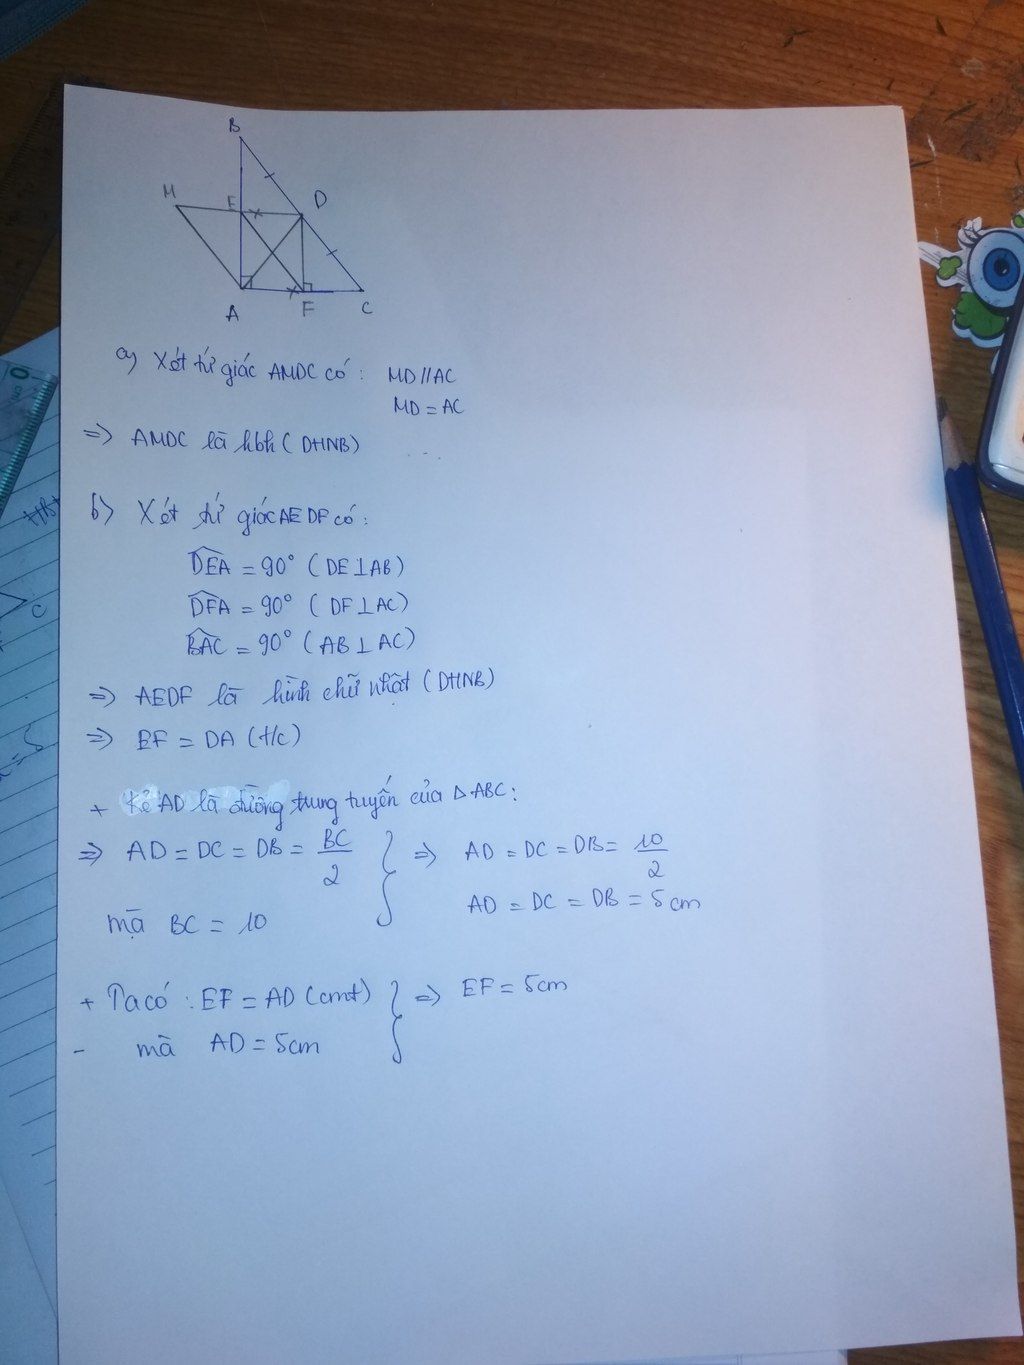 B
M
E
D
A
F
C
a) Xét tứ giác AMDC có : MD // AC
MD = AC
=> AMDC là hbh ( DHNB)
b) Xét tứ giác AEDF có :
DEA = 90° ( DE ⊥ AB)
DFA = 90° ( DF ⊥ AC)
BAC = 90° ( AB ⊥ AC)
=> AEDF là hình chữ nhật ( DHNB)
=> EF = DA (t/c)
+ Kẻ AD là đường trung tuyến của Δ ABC :
=> AD = DC = DB = BC/2 } => AD = DC = DB = 10/2
mà BC = 10
AD = DC = DB = 5 cm
+ Ta có : EF = AD (cmt) } => EF = 5cm
- mà AD = 5cm
C
0